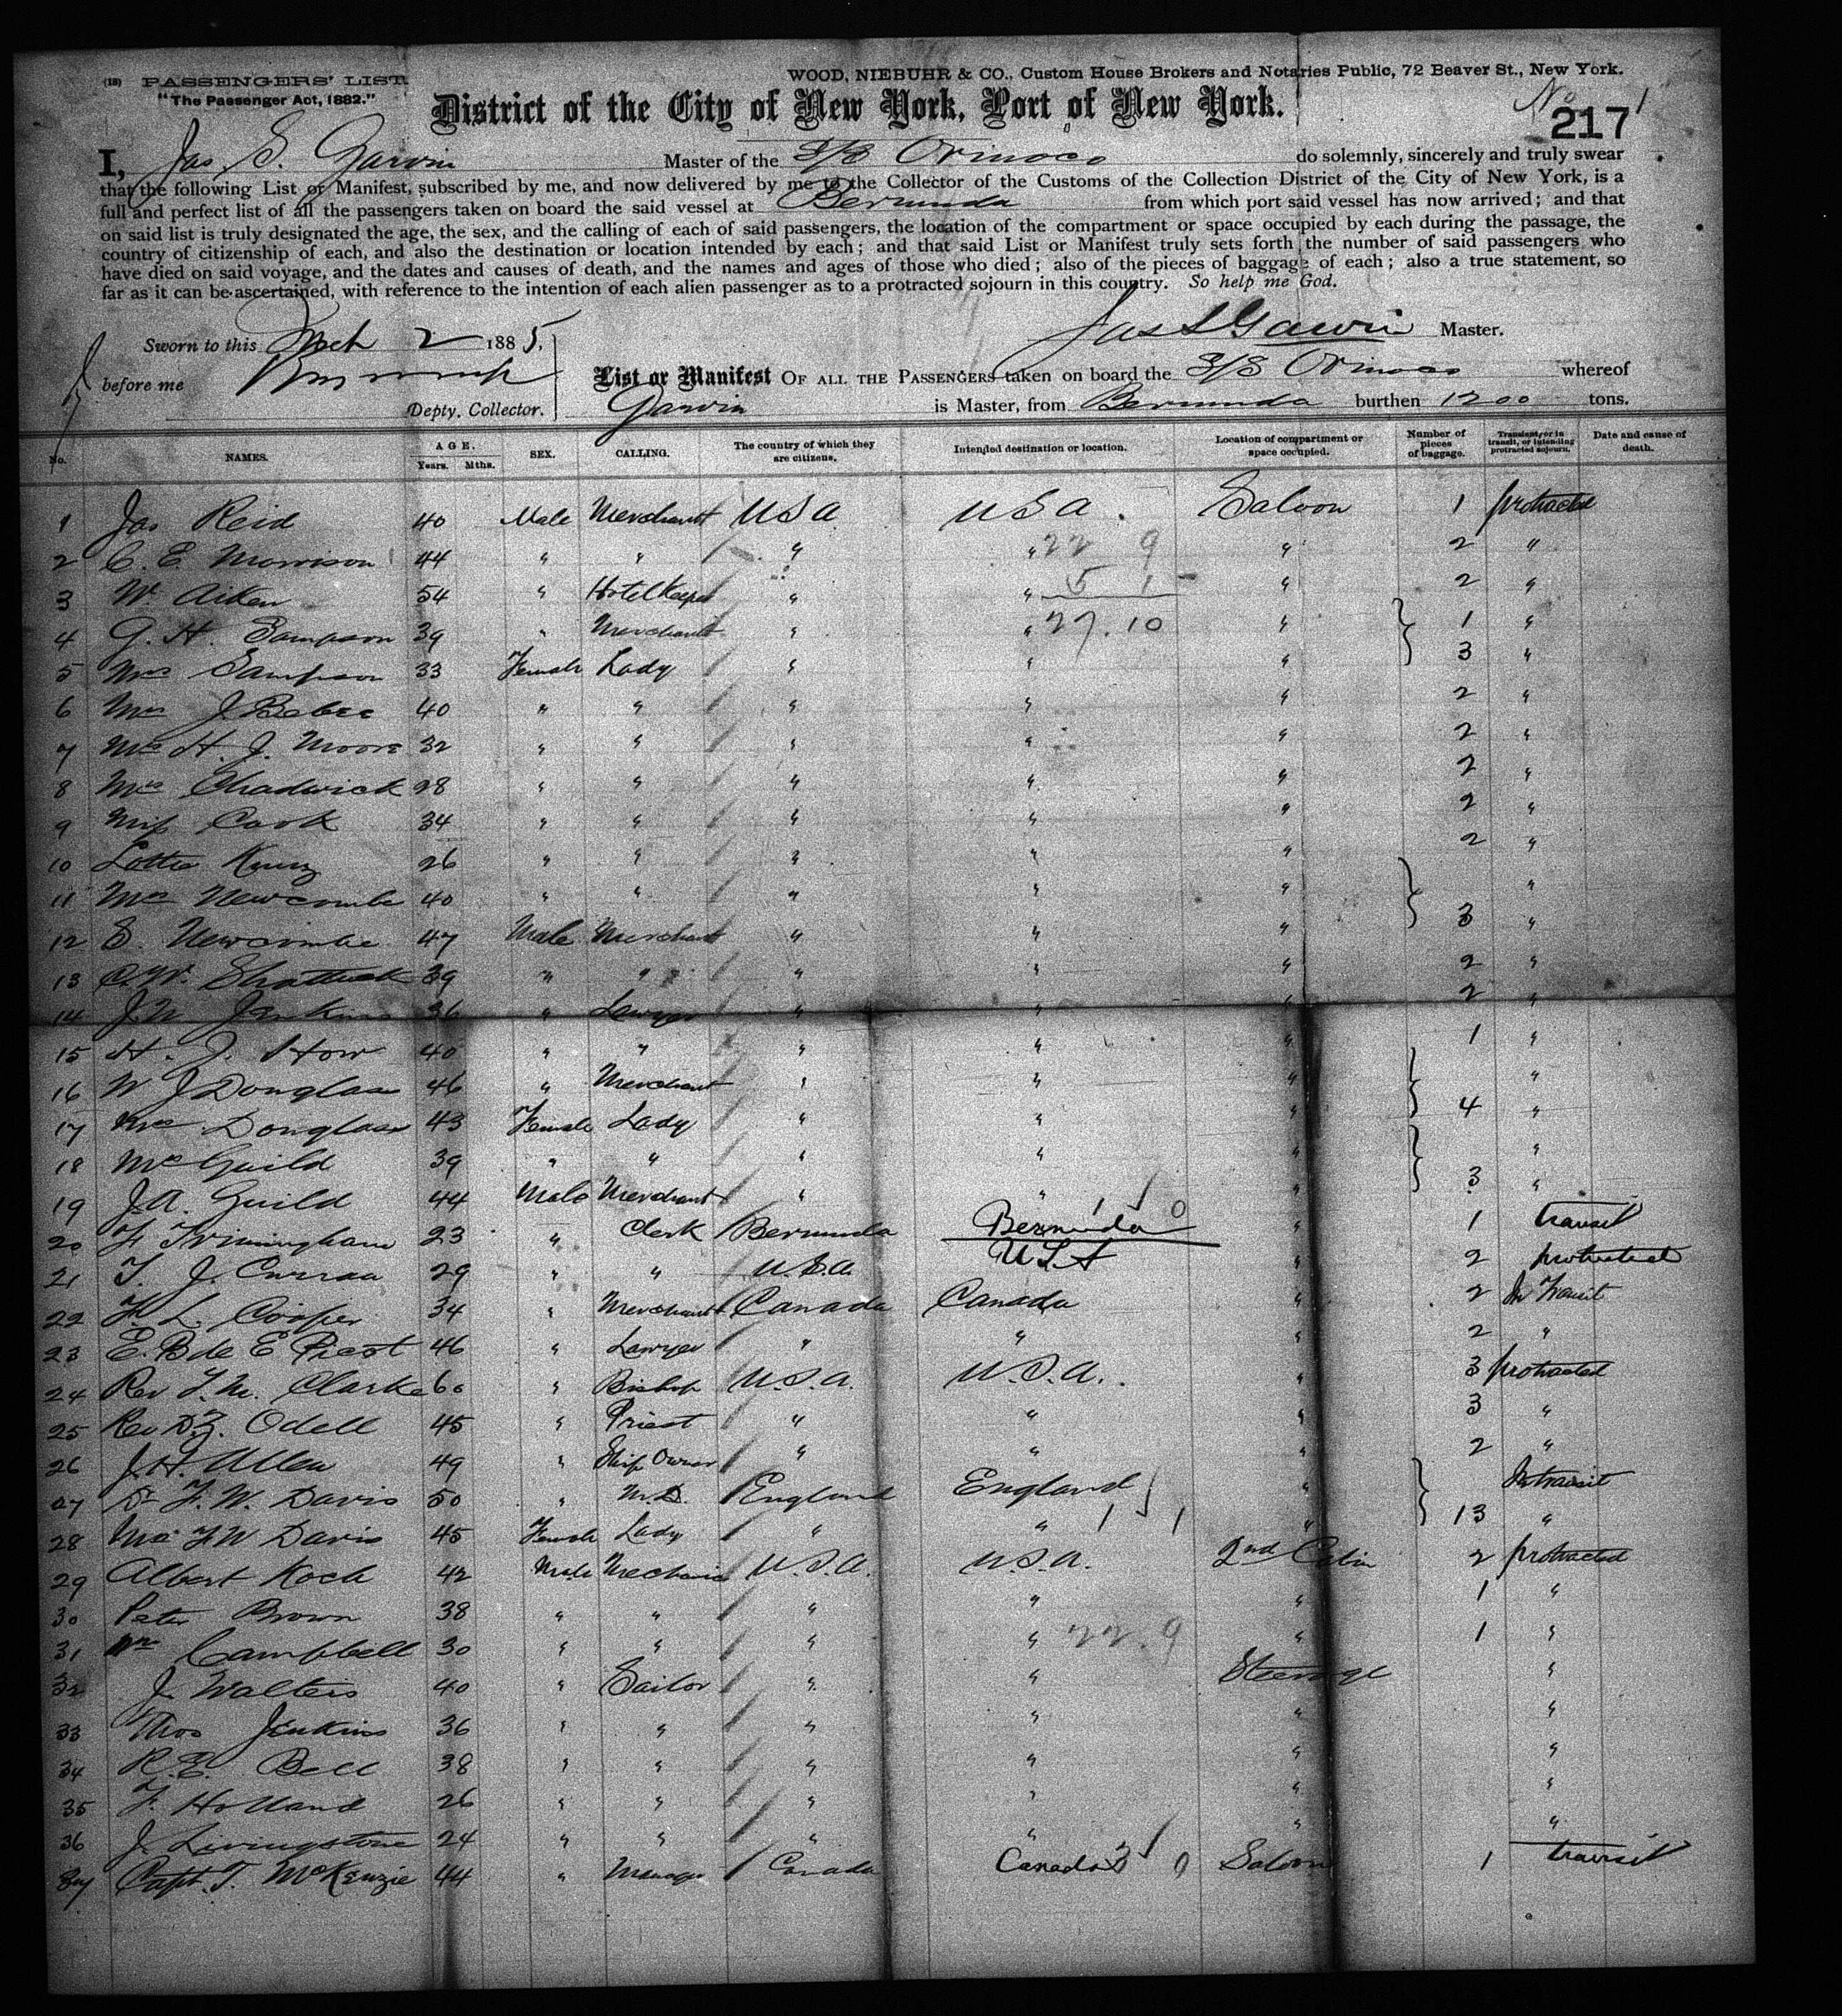 (18) PASSENGERS' LIST. WOOD, NIEBUHR & CO., Custom House Brokers and Notaries Public, 72 Beaver St., New York.
"The Passenger Act, 1882." District of the City of New York, Port of New York. No 1
217
I, Jas S. Garvin Master of the S/S Orinoco do solemnly, sincerely and truly swear
that the following List or Manifest, subscribed by me, and now delivered by me to the Collector of the Customs of the Collection District of the City of New York, is a
full and perfect list of all the passengers taken on board the said vessel at Bermuda from which port said vessel has now arrived; and that
on said list is truly designated the age, the sex, and the calling of each of said passengers, the location of the compartment or space occupied by each during the passage, the
country of citizenship of each, and also the destination or location intended by each; and that said List or Manifest truly sets forth the number of said passengers who
have died on said voyage, and the dates and causes of death, and the names and ages of those who died; also of the pieces of baggage of each; also a true statement, so
far as it can be ascertained, with reference to the intention of each alien passenger as to a protracted sojourn in this country. So help me God.
Jas S Garvin Master.
Sworn to this Mch 2 1885,
before me List or Manifest OF ALL THE PASSENGERS taken on board the S/S Orinoco whereof
Depty. Collector. Garvin is Master, from Bermuda burthen 1200 tons.
No. NAMES. AGE. Years. Mths. SEX. CALLING. The country of which they are citizens. Intended destination or location. Location of compartment or space occupied. Number of pieces of baggage. Transient, or in transit, or intending protracted sojourn. Date and cause of death.
1 Jas Reid 40 Male Merchant USA USA. Saloon 1 protracted
2 C. E. Morrison 44 " " " " 22 9 " 2 "
3 W. Aiken 54 " Hotel Keeper " " 5 1 " 2 "
4 G. H. Sampson 39 " Merchant " " 27.10 " 1 "
5 Mrs Sampson 33 Female Lady " " " 3 "
6 Mrs J. Bebee 40 " " " " " 2 "
7 Mrs H. J. Moore 32 " " " " " 2 "
8 Mrs Chadwick 28 " " " " " 2 "
9 Miss Cook 34 " " " " " 2 "
10 Lottie 26 " " " " " 2 "
11 Mrs Newcombe 40 " " " " " "
12 E. Newcombe 47 Male Merchant " " " 3 "
13 C. W. Shattuck 39 " " " " " 2 "
14 J. N. Jenkins 36 " Lawyer " " " 2 "
15 H. J. How 40 " " " " " 1 "
16 W J Douglass 46 " Merchant " " " "
17 Mrs Douglass 43 Female Lady " " " 4 "
18 Mrs Guild 39 " " " " " "
19 J. A. Guild 44 Male Merchant " " " 3 "
20 F Trimingham 23 " Clerk Bermuda Bermuda 1 0 " 1 transit
21 T. J. Curran 29 " " U.S.A. USA " 2 protracted
22 F. L. Cooper 34 " Merchant Canada Canada " 2 In Transit
23 E. B de E Priest 46 " Lawyer " " " 2 "
24 Rev T. M. Clarke 60 " Bishop U.S.A. U.S.A. " 3 protracted
25 Rev D. Z. Odell 45 " Priest " " " 3 "
26 J. H. Allen 49 " Ship Owner " " " 2 "
27 Dr F. W. Davis 50 " M.D. England England " In transit
28 Mrs F W Davis 45 Female Lady " " 1 1 " 13 "
29 Albert Koch 42 Male Mechanic U.S.A. U.S.A. 2nd Cabin 2 protracted
30 Peter Brown 38 " " " " " 1 "
31 Wm Campbell 30 " " " " 22.9 " 1 "
32 J. Walters 40 " Sailor " " Steerage "
33 Thos Jenkins 36 " " " " " "
34 R. E. Bell 38 " " " " " "
35 F. Holland 26 " " " " " "
36 J. Livingstone 24 " " " " " "
37 Capt. T. McKenzie 44 " Manager Canada Canada 3 0 Saloon 1 transit